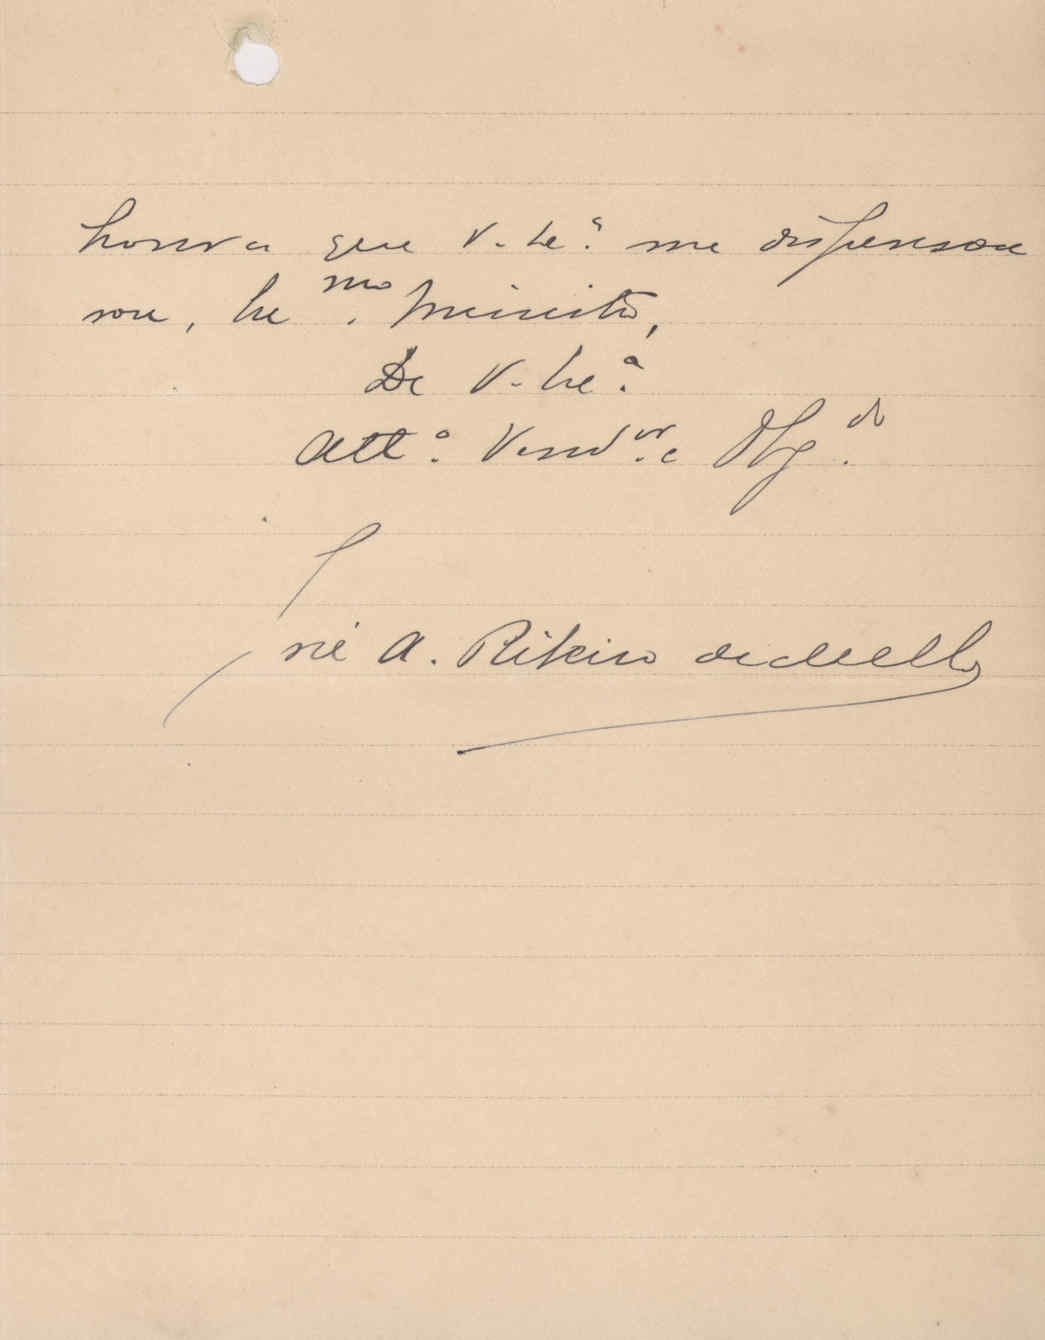 honra que V. Exª. me dispensou
sou, Exmo. Ministro,
De V. Exª.
Attº. Venor. e Obgdo.
José A. Ribeiro de Mello